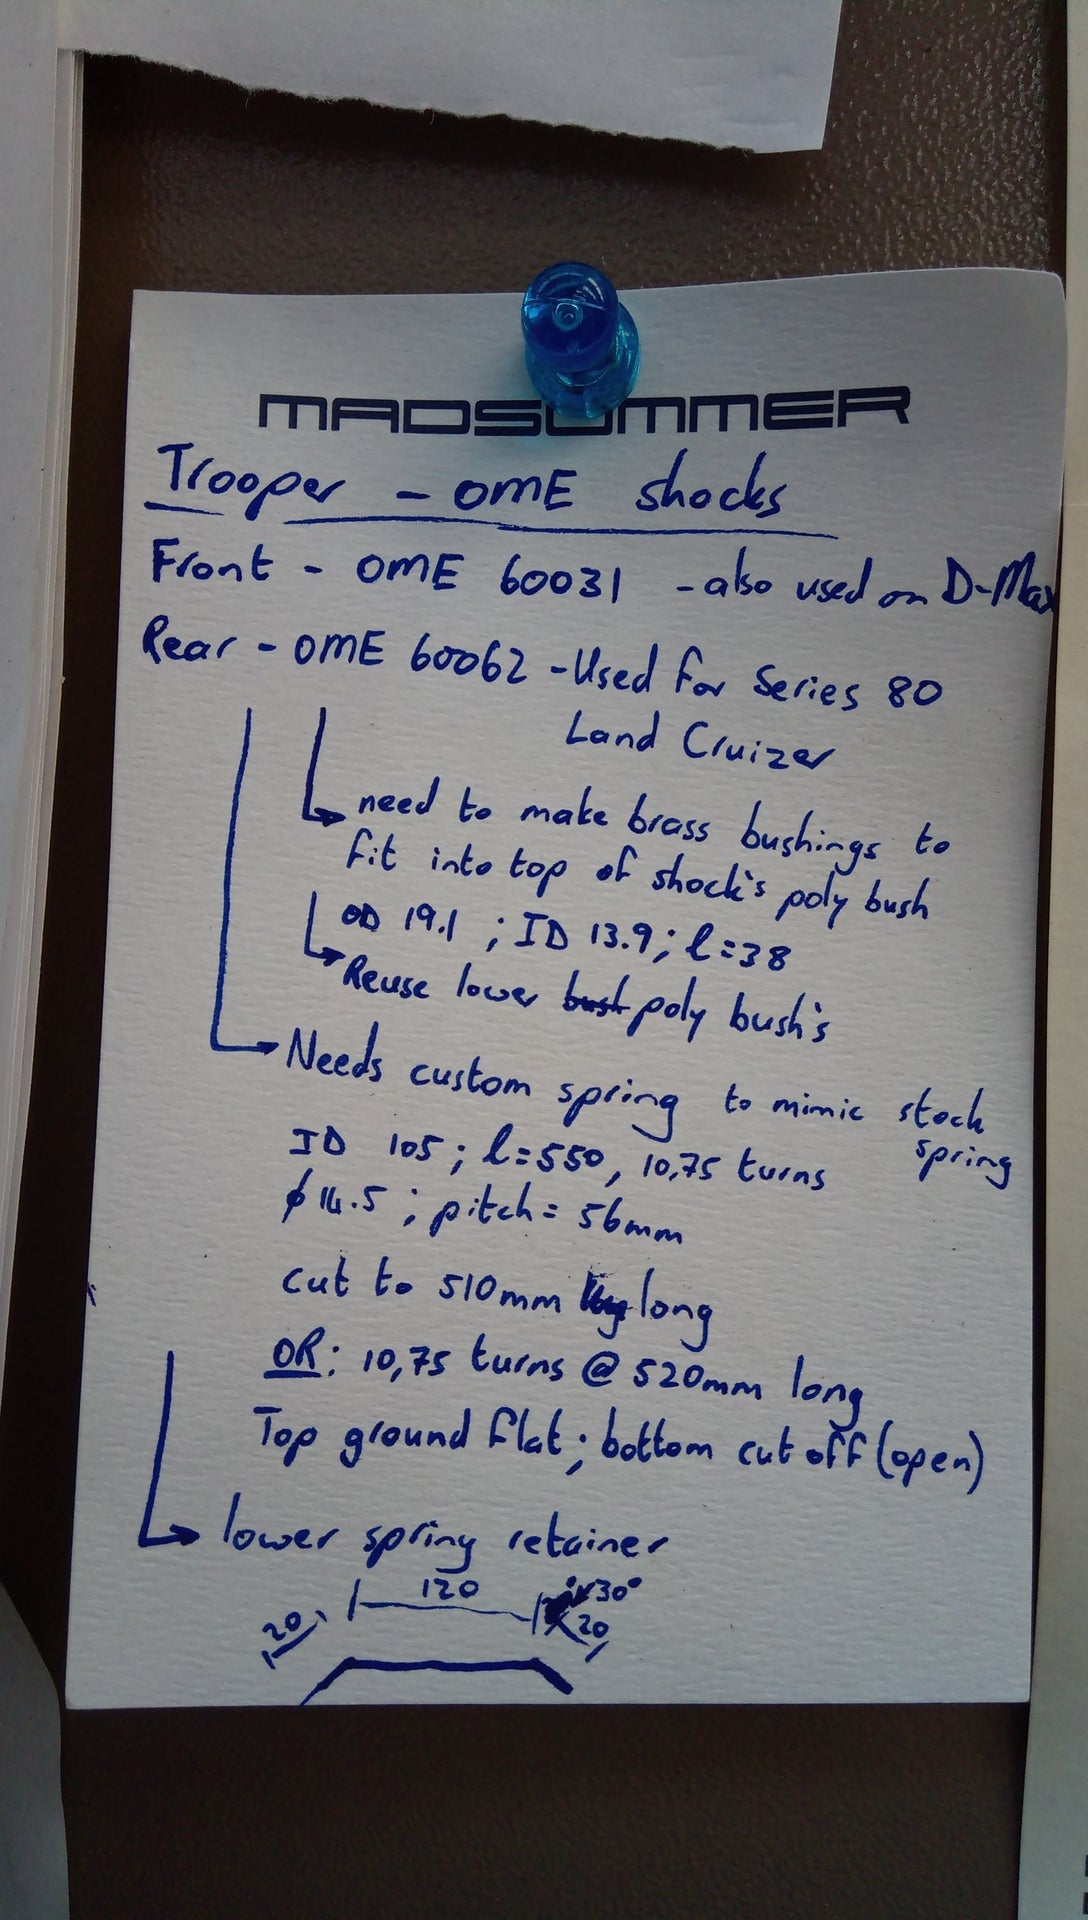 MADSUMMER
Trooper - OME shocks
Front - OME 60031 - also used on D-Max
Rear - OME 60062 - Used for Series 80
Land Cruizer
need to make brass bushings to
fit into top of shock's poly bush
OD 19.1 ; ID 13.9; l=38
Reuse lower bush poly bush's
Needs custom spring to mimic stock
spring
ID 105; l=550, 10,75 turns
ϕ14.5 ; pitch = 56mm
cut to 510mm long
OR: 10,75 turns @ 520mm long
Top ground flat; bottom cut off (open)
lower spring retainer
120
30°
20
20